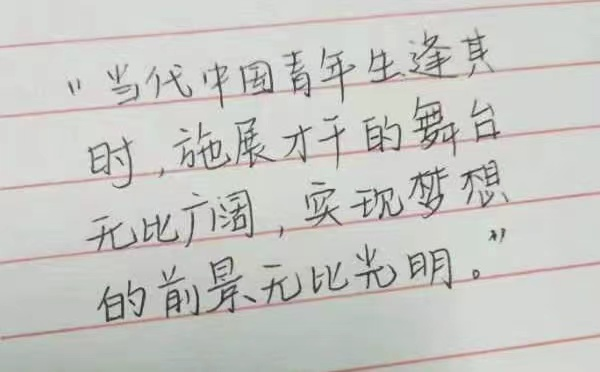 “当代中国青年生逢其
时,施展才干的舞台
无比广阔,实现梦想
的前景无比光明。”